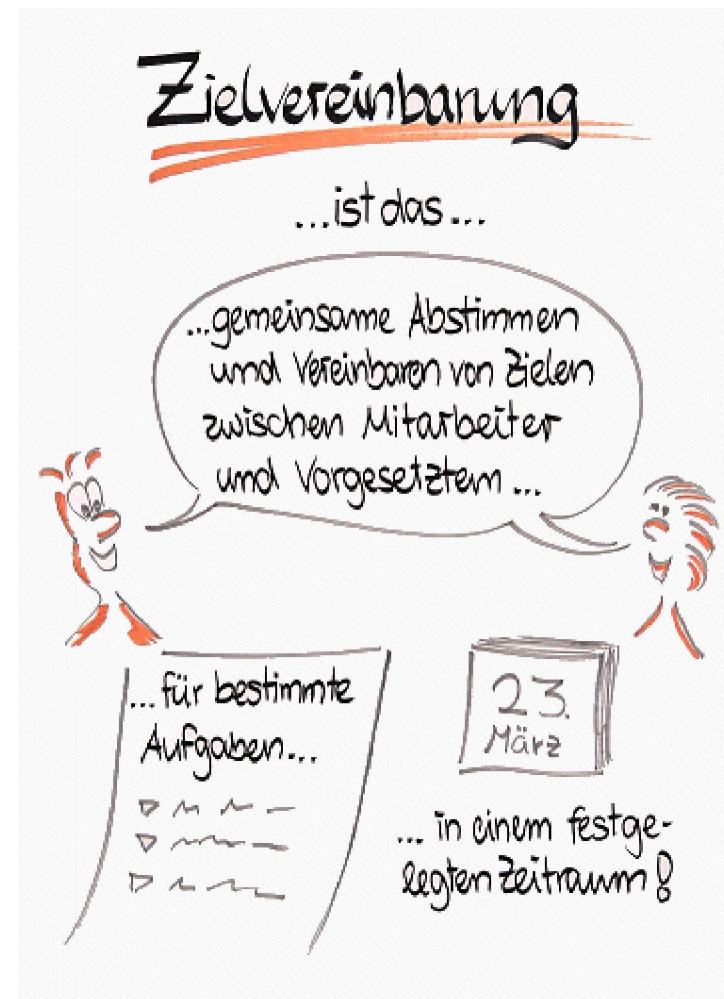 Zielvereinbarung
...ist das...
...gemeinsame Abstimmen
und Vereinbaren von Zielen
zwischen Mitarbeiter
und Vorgesetztem...
...für bestimmte
Aufgaben...
23.
März
... in einem festge-
legten Zeitraum!